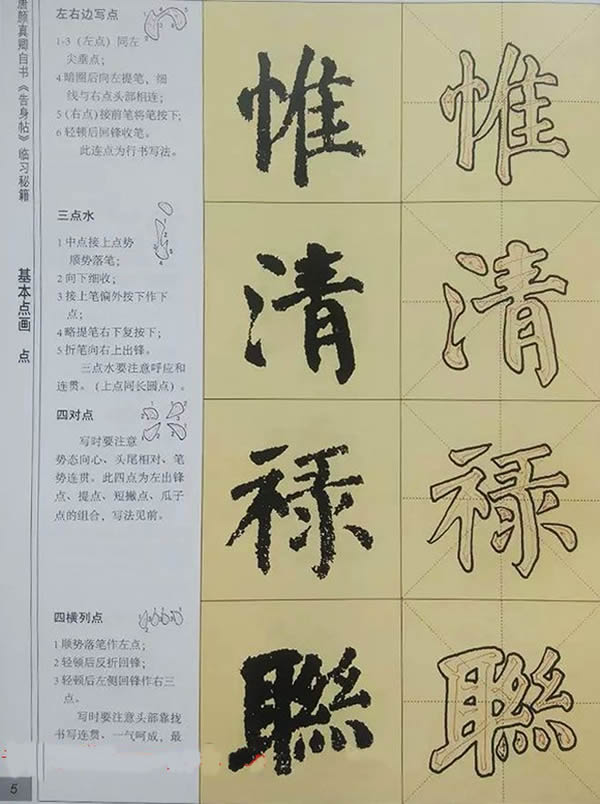 唐颜真卿自书《告身帖》临习秘籍
基本点画 点
左右边写点
1-3（左点）同左
尖垂点；
4 暗圈后向左提笔，细
线与右点头部相连；
5（右点）接前笔将笔按下；
6 轻顿后回锋收笔。
此连点为行书写法。
惟
惟
三点水
1 中点接上点势
顺势落笔；
2 向下细收；
3 接上笔偏外按下作下
点；
4 略提笔右下复按下；
5 折笔向右上出锋。
三点水要注意呼应和
连贯。（上点同长圆点）。
清
清
四对点
写时要注意
势态向心、头尾相对、笔
势连贯。此四点为左出锋
点、提点、短撇点、瓜子
点的组合，写法见前。
禄
禄
四横列点
1 顺势落笔作左点；
2 轻顿后反折回锋；
3 轻顿后左侧回锋作右三
点。
写时要注意头部靠拢
书写连贯、一气呵成，最
聯
聯
5